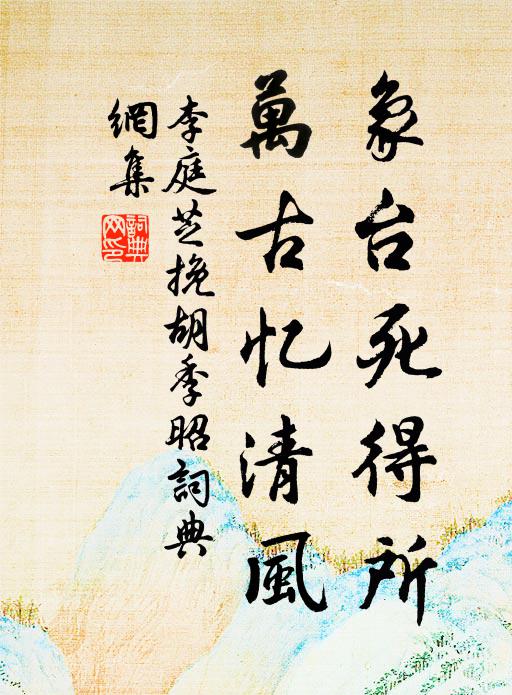 象台死得所
萬古忆清風
李庭芝挽胡季昭詞典
網集
詞典
网印